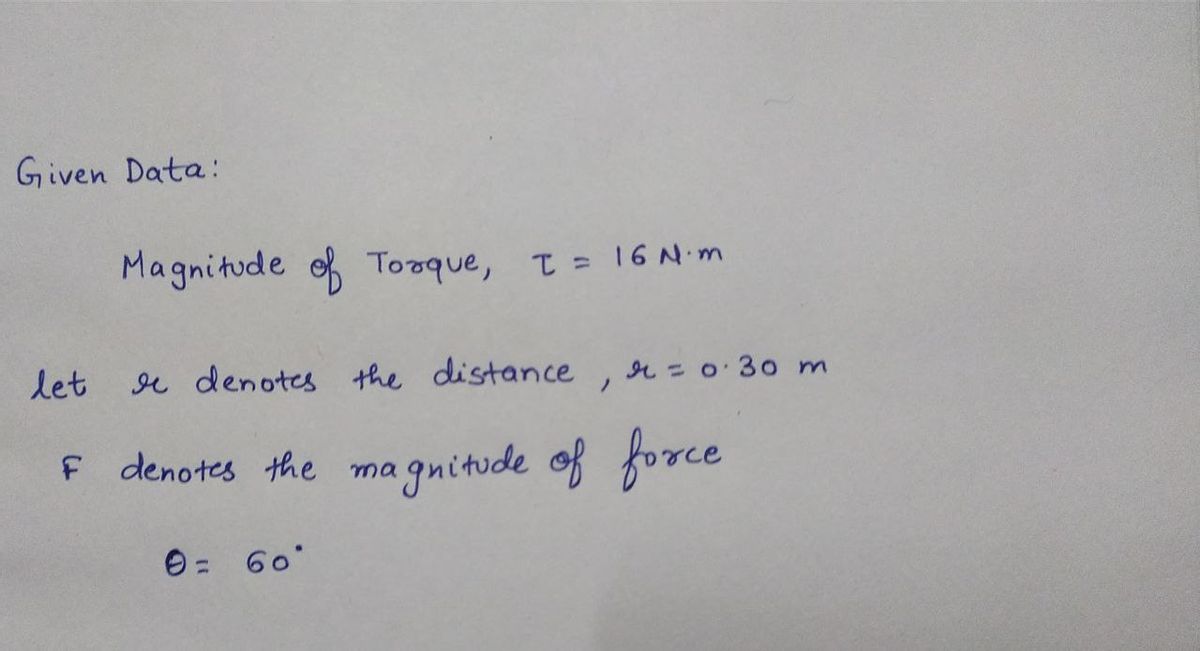 Given Data:
Magnitude of Torque, τ = 16 N·m
let r denotes the distance, r = 0.30 m
F denotes the magnitude of force
θ = 60°